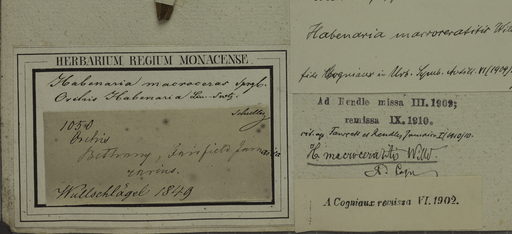 HERBARIUM REGIUM MONACENSE
Habenaria macroceras Sprgl.
Orchis Habenaria Lin. Swtz.
Schedler
1058
Orchis
Bethany, Fairfield Jamaica
rarius.
Wullschlägel 1849
Habenaria macroceratitis Willd
fide Cogniaux in Urb. Symb. Antill. VI (1909)
Ad Rendle missa III.1909;
remissa IX.1910.
cit. ap. Fawcett et Rendle, Jamaica I (1910)
H. macroceratitis Willd.
A Cogniaux remissa VI.1902.